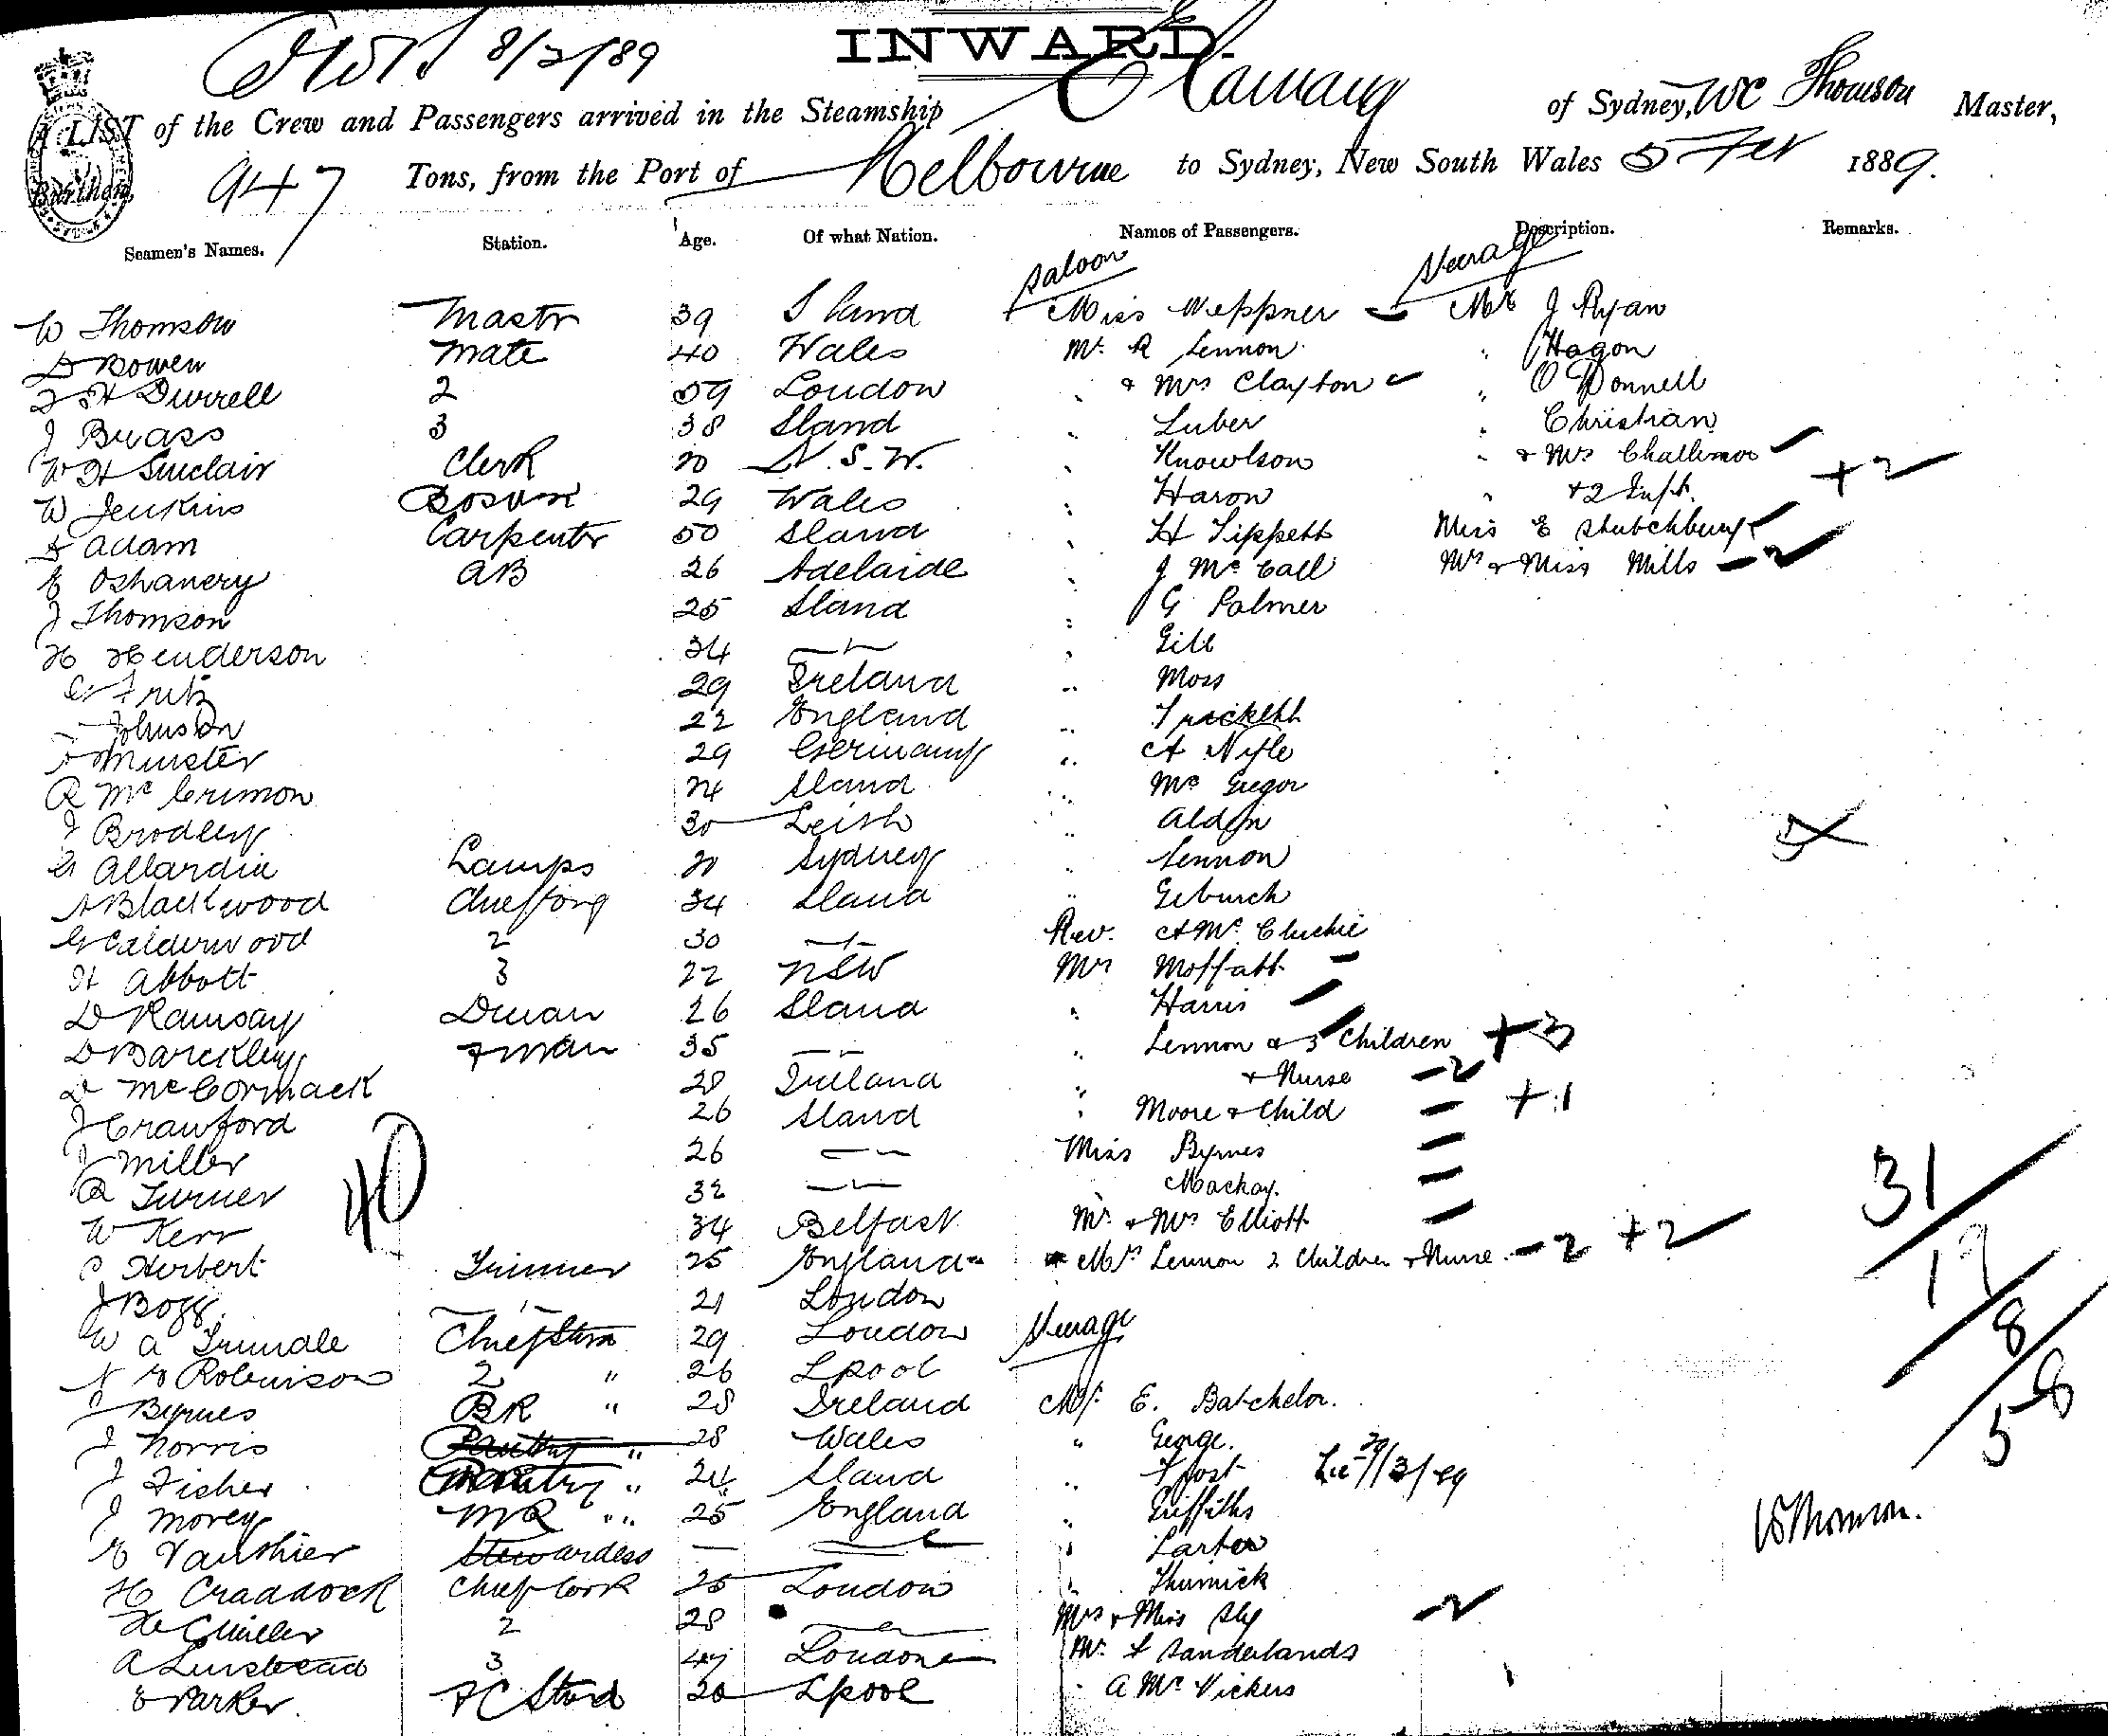 INWARD.
8/2/89
A LIST of the Crew and Passengers arrived in the Steamship of Sydney, WC Thomson Master,
Burthen, 947 Tons, from the Port of Melbourne to Sydney, New South Wales 5 Feb 1889.
Seamen's Names. Station. Age. Of what Nation. Names of Passengers. Description. Remarks.
Saloon Steerage
W Thomson Mastr 39 Sland Miss Weppner Mr J Ryan
D Bowen Mate 40 Wales Mr. R Lennon " Hagon
Durrell 2 59 London " & Mrs Clayton " O'Donnell
J Brass 3 38 Sland " Luber " Christian
W H Sinclair Clerk 20 N.S.W. " Knowlson " & Mrs
W Jenkins Bosun 29 Wales " Haron " +2 Inft. +2
D Adam Carpentr 50 Sland " H Tippett Miss E
E Oshanery AB 26 Adelaide " J McCall Mrs & Miss Mills - 2
J Thomson 25 Sland " G Palmer
H Henderson 34 " Gill
Fritz 29 Ireland " Moss
Johnson 22 England " Trickett
Munster 29 Germany " A
R McCrimon 24 Sland " McGregor
J Brodley 30 Leith "
G Allardin Lamps 20 Sydney " Lennon
A Blackwood Chief Eng 34 Sland "
G Calderwood 2 30 Rev. A
H Abbott 3 22 NSW Mrs Moffatt -
D Ramsay Dman 26 Sland " Harris
D Barckley Fman 35 " Lennon & 3 Children +3
D McCormack 28 Ireland " & Nurse -2
J Crawford 26 Sland " Moore & Child - +1
J Miller 26 Miss Byrnes -
R Turner 32 Mackay. -
W Kerr 34 Belfast Mr. & Mrs Elliott -
Herbert Trimmer 25 England Mrs Lennon 2 Children & Nurse - 2 +2
40
31
J Bogg 21 London
12
W A Trundle Chief Stwd 29 London Steerage
8
Robinson 2 " 26 Lpool
J Byrnes BR " 28 Ireland Mr. E. Batchelor.
58
J Norris Pantry " 28 Wales " George.
J Fisher Pantry " 24 Sland " Frost
J Morey MR " 25 England " Griffiths
E Vauthier Stewardess — " Carter
WThomson.
H Craddock Chief Cook 25 London "
2 28 Mrs & Miss Sly -2
A 3 47 London Mr. Sanderlands
E Parker. FC Stwd 20 Lpool " A McVickers